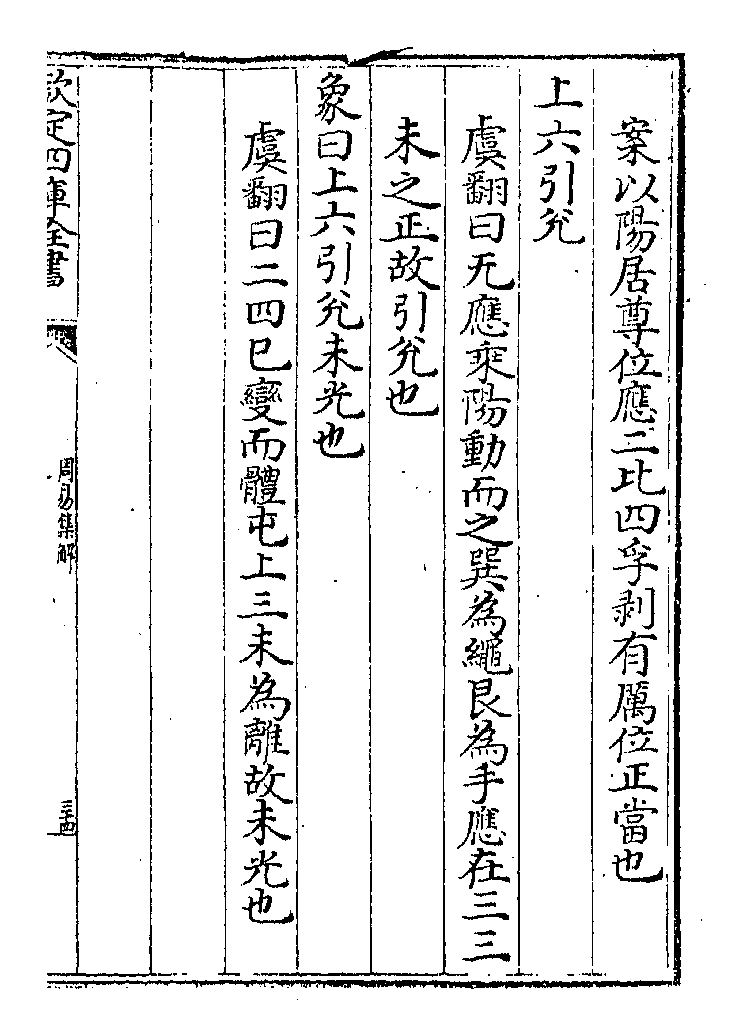 案以陽居尊位應二比四孚剥有厲位正當也
上六引兊
虞翻曰无應乘陽動而之巽為繩艮為手應在三三
未之正故引兊也
象曰上六引兊未光也
虞翻曰二四已變而體屯上三未為離故未光也
欽定四庫全書
周易集解
三十四